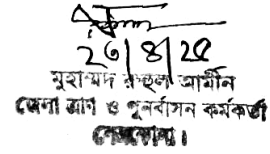 ২৩/৪/২৫
মুহাম্মদ রুহুল আমীন
জেলা ত্রাণ ও পুনর্বাসন কর্মকর্তা
নেত্রকোনা।